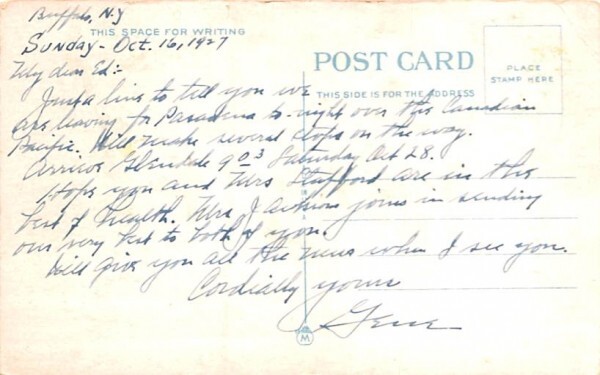 Buffalo, N.Y
THIS SPACE FOR WRITING
Sunday - Oct. 16, 1927
My dear Ed:-
POST CARD
THIS SIDE IS FOR THE ADDRESS
PLACE
STAMP HERE
Just a line to tell you we
are leaving for Pasadena to-night over the Canadian
Pacific. Will make several stops on the way.
Arrive Glendale 9 03 Saturday Oct 28.
Hope you and Mrs Stafford are in the
best of health. Mrs joins in sending
our very best to both of you.
Will give you all the news when I see you.
Cordially yours
Gene
M